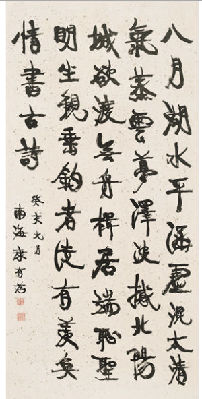 八月湖水平涵虛混太清
氣蒸雲夢澤波撼岳陽
城欲渡無舟楫居端恥聖
明坐觀垂釣者徒有羨魚
情書古詩
癸亥九月
南海康有為